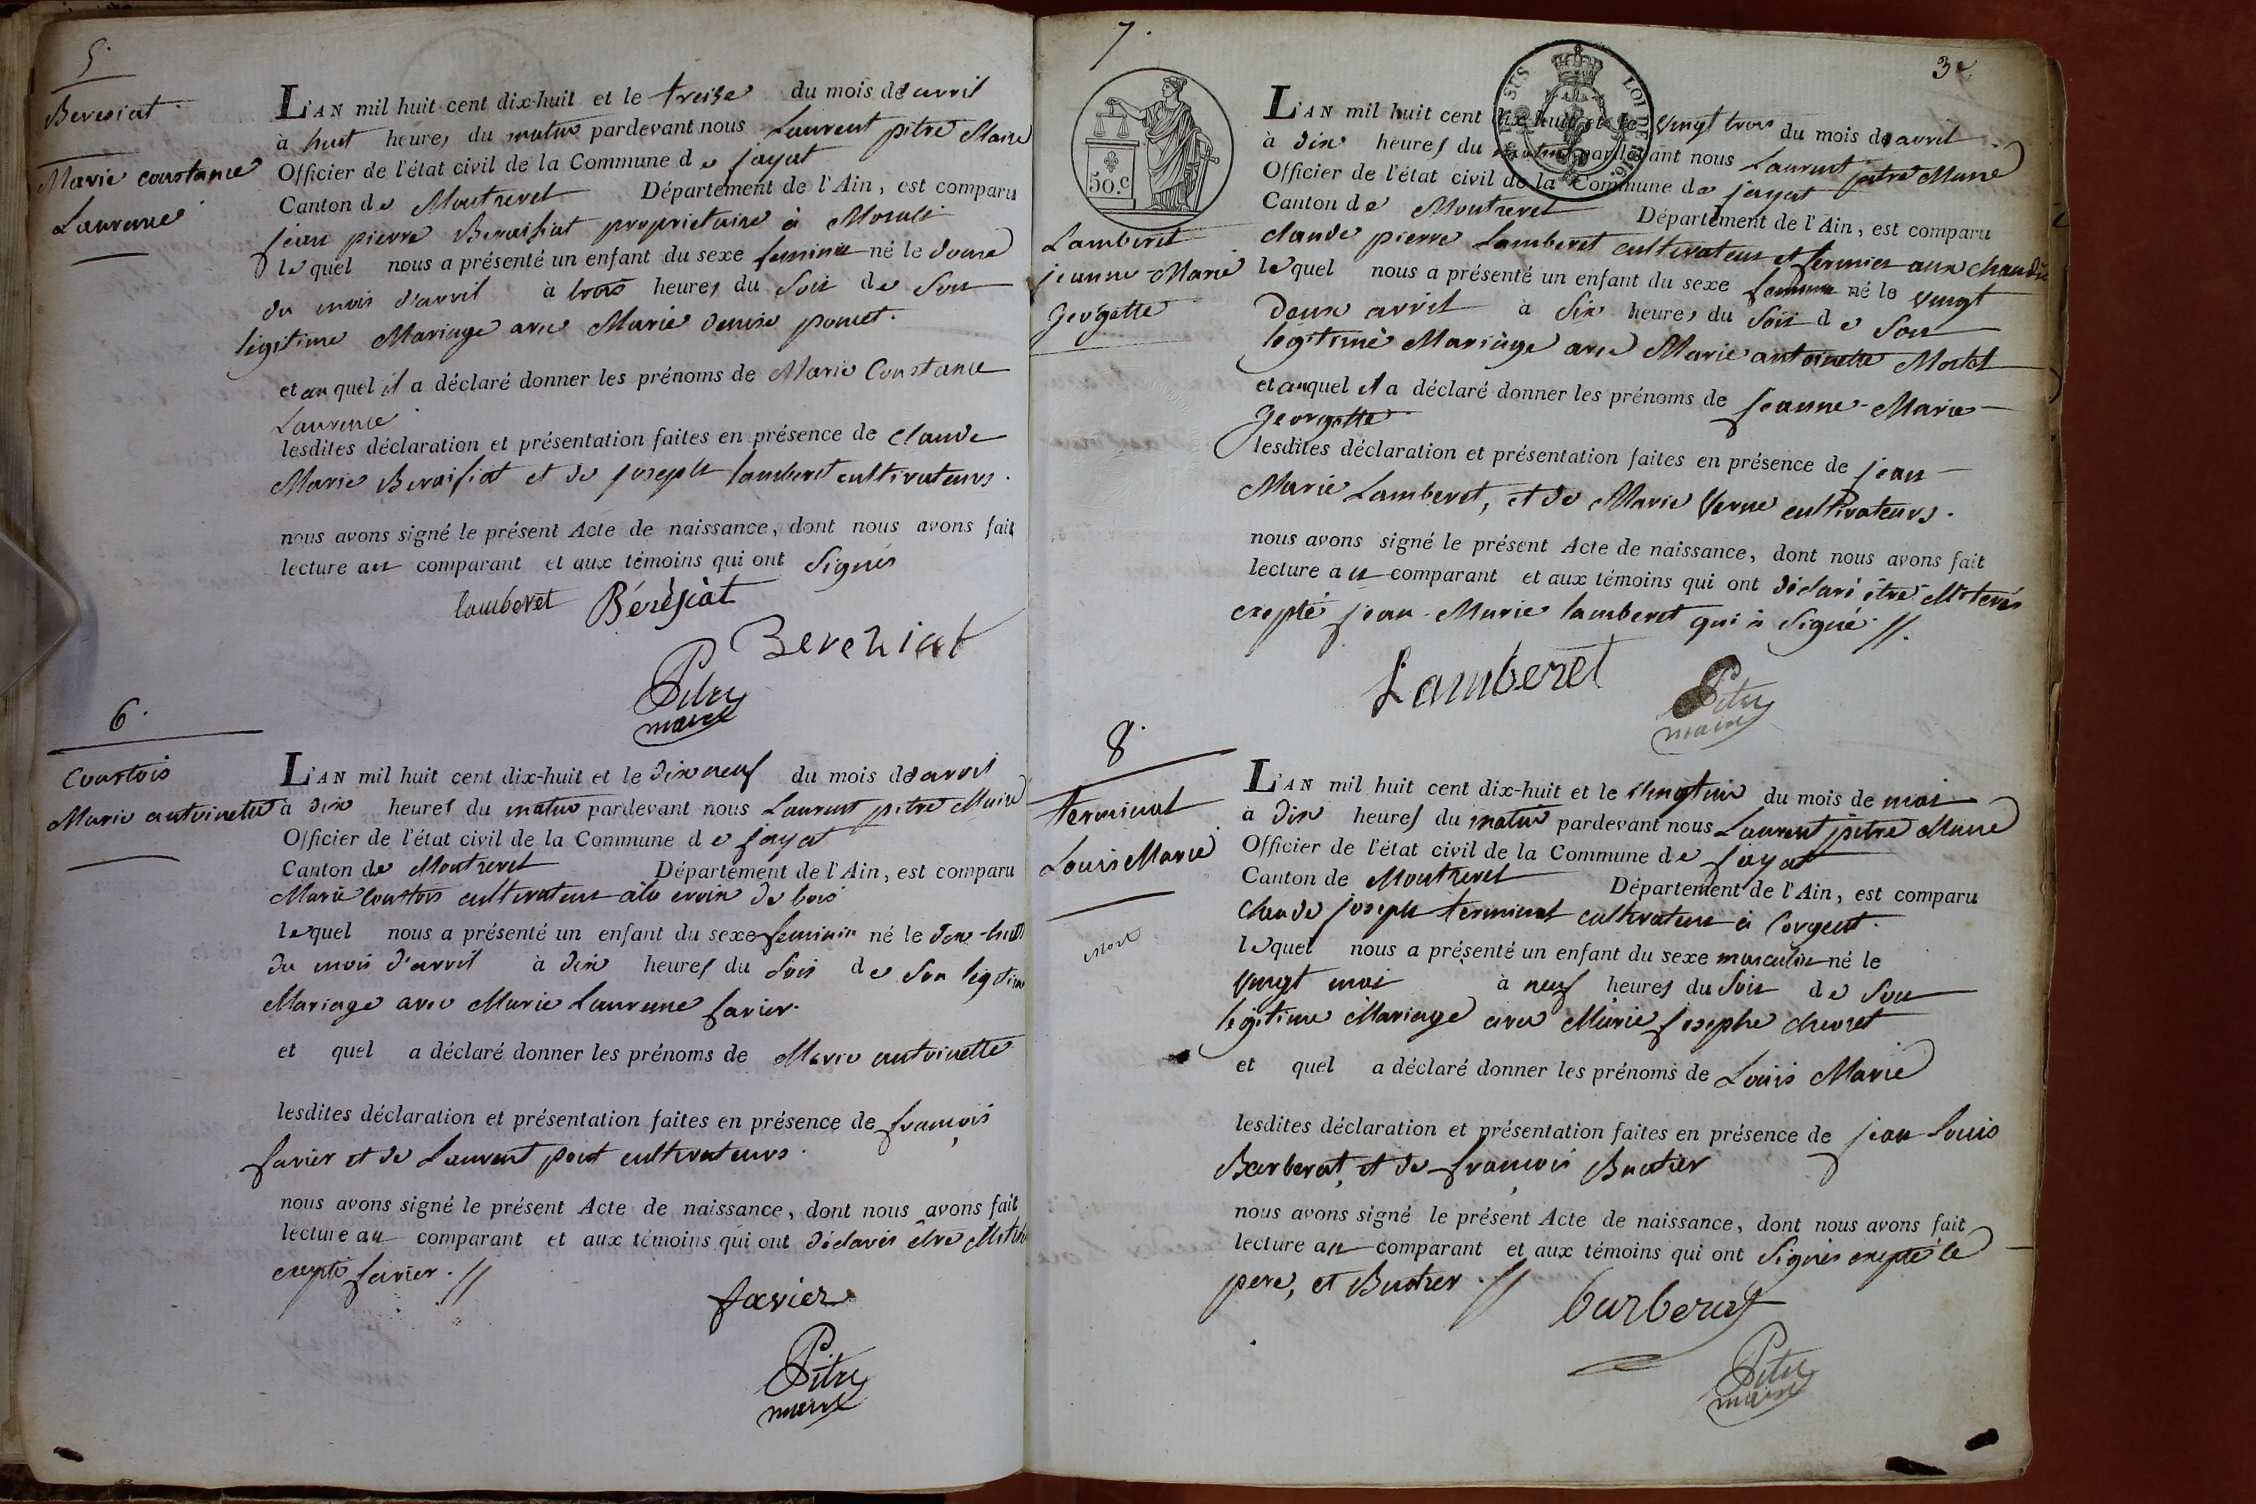 5.
Beresiat
Marie Constance
Laurence
L'AN mil huit cent dix-huit et le treize du mois de avril
à huit heures du matin pardevant nous Laurent pitre Maire
Officier de l'état civil de la Commune de jayat
Canton de Montrevel Département de l'Ain, est comparu
jean pierre Beraisiat propriétaire à
lequel nous a présenté un enfant du sexe feminin né le douze
du mois d'avril à trois heures du soir de son
légitime Mariage avec Marie denise poncet.
et auquel il a déclaré donner les prénoms de Marie Constance
Laurence
lesdites déclaration et présentation faites en présence de claude
Marie Beraisiat et de joseph lamberet cultivateurs.
nous avons signé le présent Acte de naissance, dont nous avons fait
lecture au comparant et aux témoins qui ont signés
lamberet Béréziat
Bereziat
Pitre
maire
6.
Courtois
Marie antoinette
L'AN mil huit cent dix-huit et le dix neuf du mois de avril
à dix heures du matin pardevant nous Laurent pitre Maire
Officier de l'état civil de la Commune de jayat
Canton de Montrevel Département de l'Ain, est comparu
Marie Courtois cultivateur à la croix de bois
lequel nous a présenté un enfant du sexe feminin né le dix-huit
du mois d'avril à dix heures du soir de son legitime
Mariage avec Marie Laurence favier.
et quel a déclaré donner les prénoms de Marie antoinette
lesdites déclaration et présentation faites en présence de françois
favier et de Laurent cultivateurs.
nous avons signé le présent Acte de naissance, dont nous avons fait
lecture au comparant et aux témoins qui ont déclarés être illitérés
excepté favier.
favier
Pitre
maire
7.
3e
50.c
LOI DE 1816
Lamberet
jeanne-Marie
georgette
L'AN mil huit cent dix-huit et le vingt trois du mois de avril
à dix heures du matin pardevant nous Laurent pitre Maire
Officier de l'état civil de la Commune de jayat
Canton de Montrevel Département de l'Ain, est comparu
claude pierre Lamberet cultivateur et fermier aux
lequel nous a présenté un enfant du sexe feminin né le vingt
deux avril à six heures du soir de son
légitime Mariage avec Marie antoinette Mortel
et auquel il a déclaré donner les prénoms de jeanne-Marie
georgette
lesdites déclaration et présentation faites en présence de jean
Marie Lamberet, et de Marie Verne cultivateurs.
nous avons signé le présent Acte de naissance, dont nous avons fait
lecture au comparant et aux témoins qui ont déclaré être illiterés
excepté jean-Marie lamberet qui a signé.
Lamberet
Pitre
maire
8.
terminat
Louis Marie
mort
L'AN mil huit cent dix-huit et le vingt un du mois de mai
à dix heures du matin pardevant nous Laurent pitre Maire
Officier de l'état civil de la Commune de jayat
Canton de Montrevel Département de l'Ain, est comparu
claude joseph terminat cultivateur à Corgent.
lequel nous a présenté un enfant du sexe masculin né le
vingt mai à neuf heures du soir de son
légitime Mariage avec Marie josephe chevret
et quel a déclaré donner les prénoms de Louis Marie
lesdites déclaration et présentation faites en présence de jean louis
Barberat, et de françois Buatier
nous avons signé le présent Acte de naissance, dont nous avons fait
lecture au comparant et aux témoins qui ont signés excepté le
pere, et Buatier.
barberat
Pitre
maire